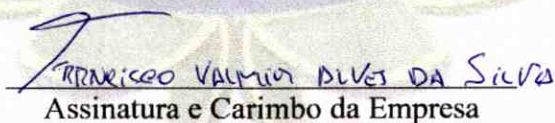 Francisco Valmir Alves da Silva
Assinatura e Carimbo da Empresa